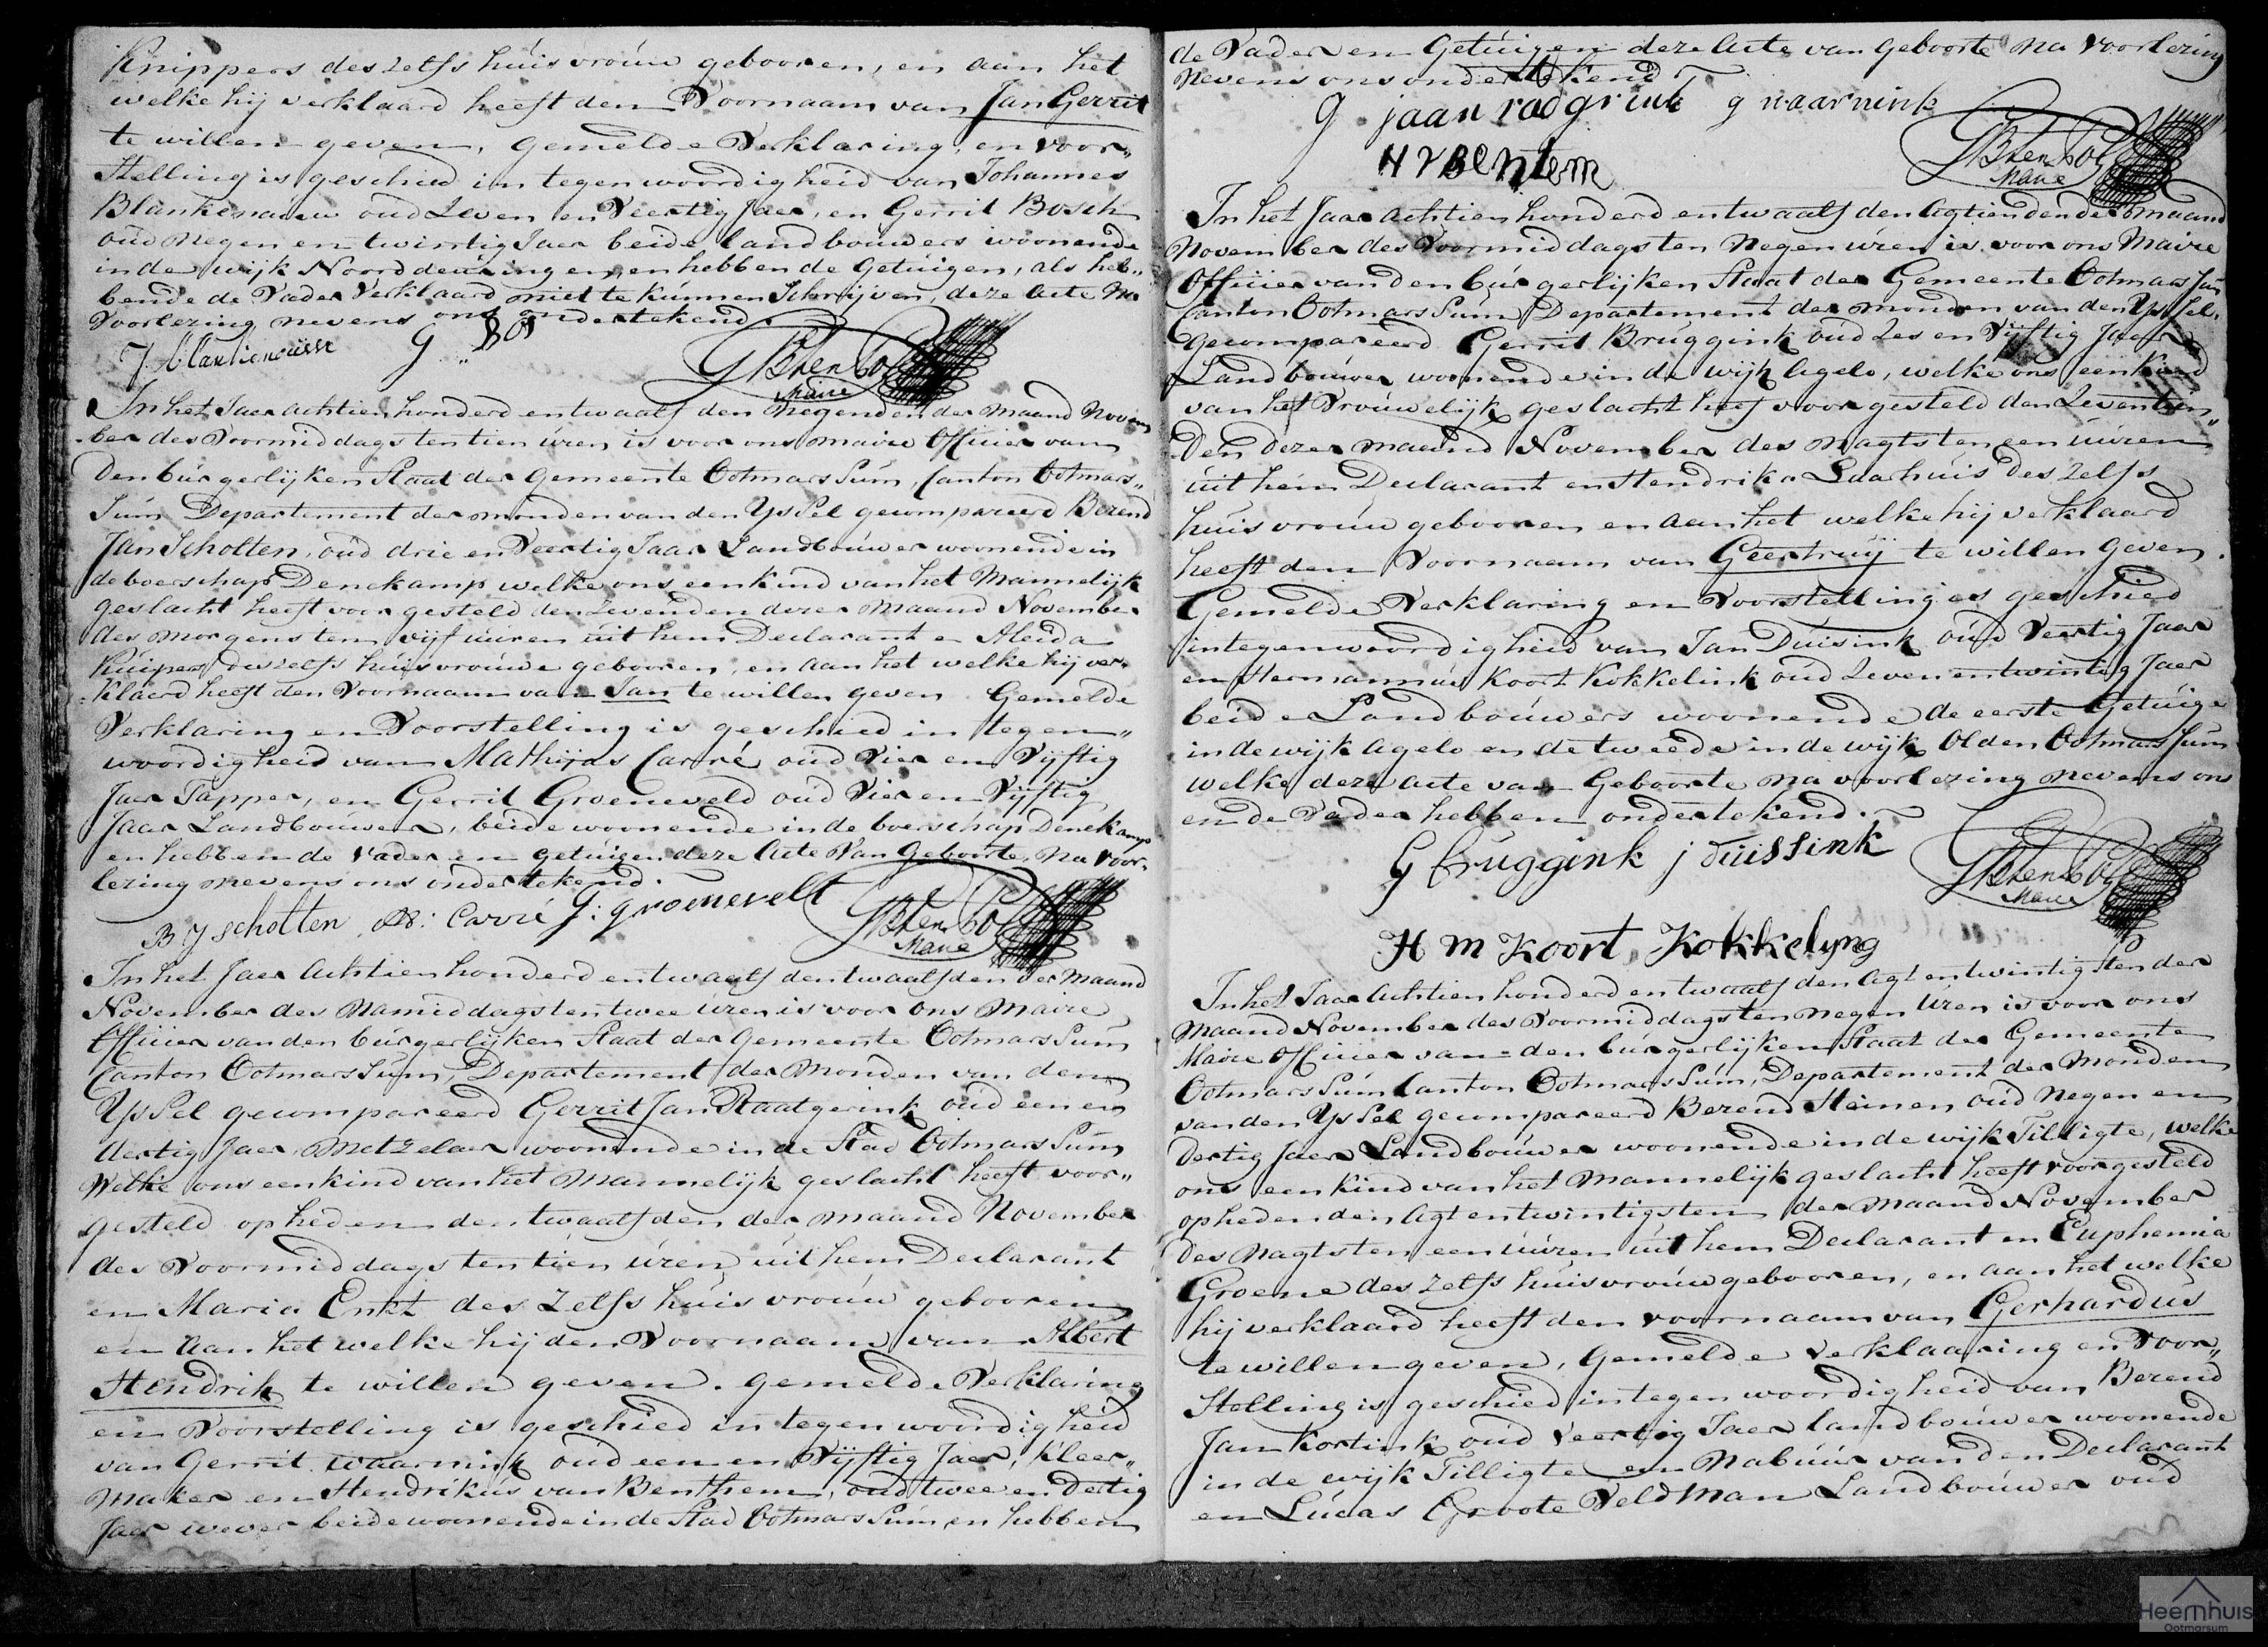 Knippers des zelfs húisvroúw gebooren, en aan het
welke hij verklaard heeft den Voornaam van Jan Gerrit
te willen geven, gemelde Verklaring, en voor„
Stelling is geschied in tegenwoordigheid van Johannes
Blankenauw oud Zeven en Veertig Jaer, en Gerrit Bosch
oud negen en twintig Jaer beide landbouwers woonende
in de wijk Noord deúringen, en hebben de Getúigen, als heb„
bende de Vader Verklaard niet te kúnnen Schrijven, deze Acte Na
Voorlezing nevens ons ondertekend
J. blankenauw G Bos GB ten Pol
Maire
In het Jaer Achtien honderd en twaalf den Negenden der Maand Novem
ber des Voormiddags ten tien úren is voor ons maire Officier van
den búrgerlijken Staat der gemeente Ootmarssúm, Canton Ootmars„
súm Departement der monden van den Yssel gecompareerd Berend
Jan Scholten, oúd drie en Veertig Jaar Landboúwer woonende in
de boerschap Denekamp welke ons een kind van het Mannelijk
geslacht heeft voorgesteld den Zevenden dezer Maand November
des morgens ten vijf úuren uit hem Declarant en Aleida
Kúipers deszelfs húisvroúwe gebooren, en aan het welke hij ver„
klaerd heeft den Voornaam van Jan te willen geven Gemelde
Verklaring en Voorstelling is geschied in tegen„
woordigheid van Mathijas Carré oúd Vier en Vijftig
Jaer Tapper, en Gerrit Groeneveld oúd Vier en Vijftig
Jaar Landboúwer, beide woonende in de boerschap Denekamp
en hebben de Vader en getúigen deze Acte van Geboorte, na voor„
lezing nevens ons ondertekend.
B J Scholten M: Carré G: groenevelt GB ten Pol
Maire
In het Jaer Achtien honderd en twaalf den twaalfden der Maand
November des Namiddags ten twee úren is voor ons Maire
Officier van den búrgerlijken Staat der Gemeente Ootmarssúm
Canton Ootmarssúm, Departement der Monden van den
Yssel gecompareerd Gerrit Jan Raatgerink oúd een en
dertig Jaer, Metzelaer woonende in de Stad Ootmarssúm
Welke ons een kind van het Mannelijk geslacht heeft voor„
gesteld op heden den twaalfden der maand November
des Voormiddags ten tien úren uit hem Declarant
en Maria Enkt des zelfs húisvroúw gebooren
en Aan het welke hij den Voornaam van Albert
Hendrik te willen geven. gemelde Verklaring
en Voorstelling is geschied in tegenwoordigheid
van Gerrit waarnink oúd een en Vijftig Jaer, kleer„
maker en Hendrikus van Benthem, oud twee en Dertig
Jaer wever beide woonende in de Stad Ootmarssúm, en hebben
de Vader en Getúigen deze Acte van geboorte na voorlezing
Nevens ons ondertekend
g jaan radgrink g waarnink
H v Bentem GB ten Pol
Maire
In het Jaar Achtien honderd en twaalf den Agtienden der maand
November des Voormiddags ten Negen úren is voor ons Maire
Officier van den búrgerlijken Staat der Gemeente Ootmarssúm
Canton Ootmarssúm, Departement der monden van den Yssel.
gecompareerd Gerrit Brúggink oúd Zes en Vijftig Jaer
Landboúwer woonende in de wijk Agelo, welke ons een kind
van het Vroúwelijk geslacht heef voorgesteld den Zeventien„
Den dezer maand November des nagts ten een úúren
úit hem Declarant en Hendrika Laarhúis des zelfs
húisvroúw gebooren en aan het welke hij verklaard
heeft den Voornaam van Geertruij te willen geven.
Gemelde Verklaring en Voorstelling is geschied
in tegenwoordigheid van Jan Dúisink oúd Veertig Jaar
en Hermannús Koort Kokkelink oúd Zeven en twintig Jaer
beide Landboúwers woonende de eerste Getúige
in de wijk Agelo en de tweede in de wijk Olden Ootmarssúm
welke deze acte van Geboorte na voorlezing nevens ons
en de Vader hebben ondertekend.
G bruggink j duissink GB ten Pol
Maire
H m Koort Kokkelyng
In het Jaar Achtien honderd en twaalf den Agt en twintigsten der
Maand November des Voormiddags ten negen Uren is voor ons
Maire Officier van den búrgerlijken Staat der Gemeente
Ootmarssúm Canton Ootmarssúm, Departement der Monden
van den Yssel gecompareerd Berend Heinen oúd Negen en
Dertig Jaer Landboúwer woonende in de wijk Tilligte, welke
ons een kind van het Mannelijk geslacht heeft voorgesteld
op heden den Agt en twintigsten der Maand November
des Nagts ten een úúren úit hem Declarant en Euphemia
Groene des zelfs húisvroúw gebooren, en aan het welke
hij verklaard heeft den voornaam van Gerhardus
te willen geven, Gemelde verklaaring en Voor„
Stelling is geschied in tegenwoordigheid van Berend
Jan Kortink oúd Veertig Jaer landboúwer woonende
in de wijk Tilligte en Nabúúr van den Declarant
en Lúcas Groote Veldman Landboúwer oúd
Heemhuis
Ootmarsum